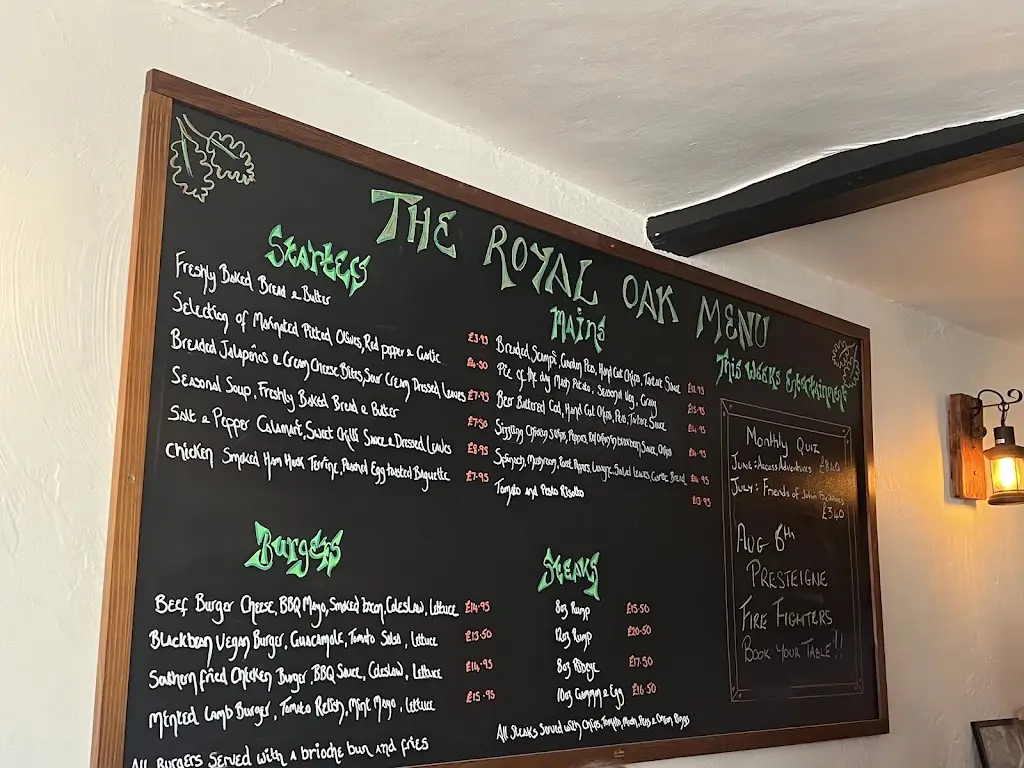 THE ROYAL OAK MENU
Starters
Freshly Baked Bread & Butter £3.95
Selection of Marinated Pitted Olives, Red pepper & Garlic £4.50
Breaded Jalapeños & Cream Cheese Bites, Sour Cream Dressed Leaves £7.95
Seasonal Soup, Freshly Baked Bread & Butter £7.50
Salt & Pepper Calamari, Sweet Chilli Sauce & Dressed Leaves £8.95
Chicken Smoked Ham Hock Terrine, Poached Egg toasted Baguette £7.95
Mains
Breaded Scampi, Garden Peas, Hand Cut Chips, Tartare Sauce
Pie of the day Mash Potato, Seasonal Veg, Gravy £15.95
Beer Battered Cod, Hand Cut Chips, Peas, Tartare Sauce £14.95
Sizzling Chicken strips, Peppers, Sauce, Chips
Spinach, Mushroom, Roast Pepper, Lasagne, Salad Leaves, Garlic Bread
Tomato and Pesto Risotto £13.95
Burgers
Beef Burger Cheese, BBQ Mayo, Smoked bacon, Coleslaw, Lettuce £14.95
Blackbean Vegan Burger, Guacamole, Tomato Salsa, Lettuce £13.50
Southern fried Chicken Burger, BBQ Sauce, Coleslaw, Lettuce £14.95
Minted Lamb Burger, Tomato Relish, Mint Mayo, Lettuce £15.95
All Burgers Served with a brioche bun and fries
Steaks
8oz Rump £15.50
12oz Rump £20.50
8oz Ribeye £17.50
10oz Gammon & Egg £16.50
All Steaks Served with Chips, Tomato, Mush, Peas & Onion Rings
This Weeks Entertainment
Monthly Quiz
June: Access Adventures £840
July: Friends of John
£340
Aug 6th
PRESTEIGNE
FIRE FIGHTERS
BOOK YOUR TABLE!!